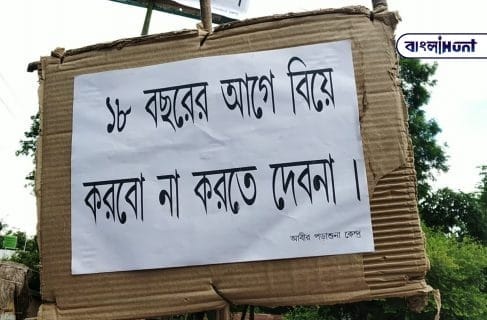 বাংলাHunt
১৮ বছরের আগে বিয়ে
করবো না করতে দেবনা ।
আবীর পড়াশুনা কেন্দ্র